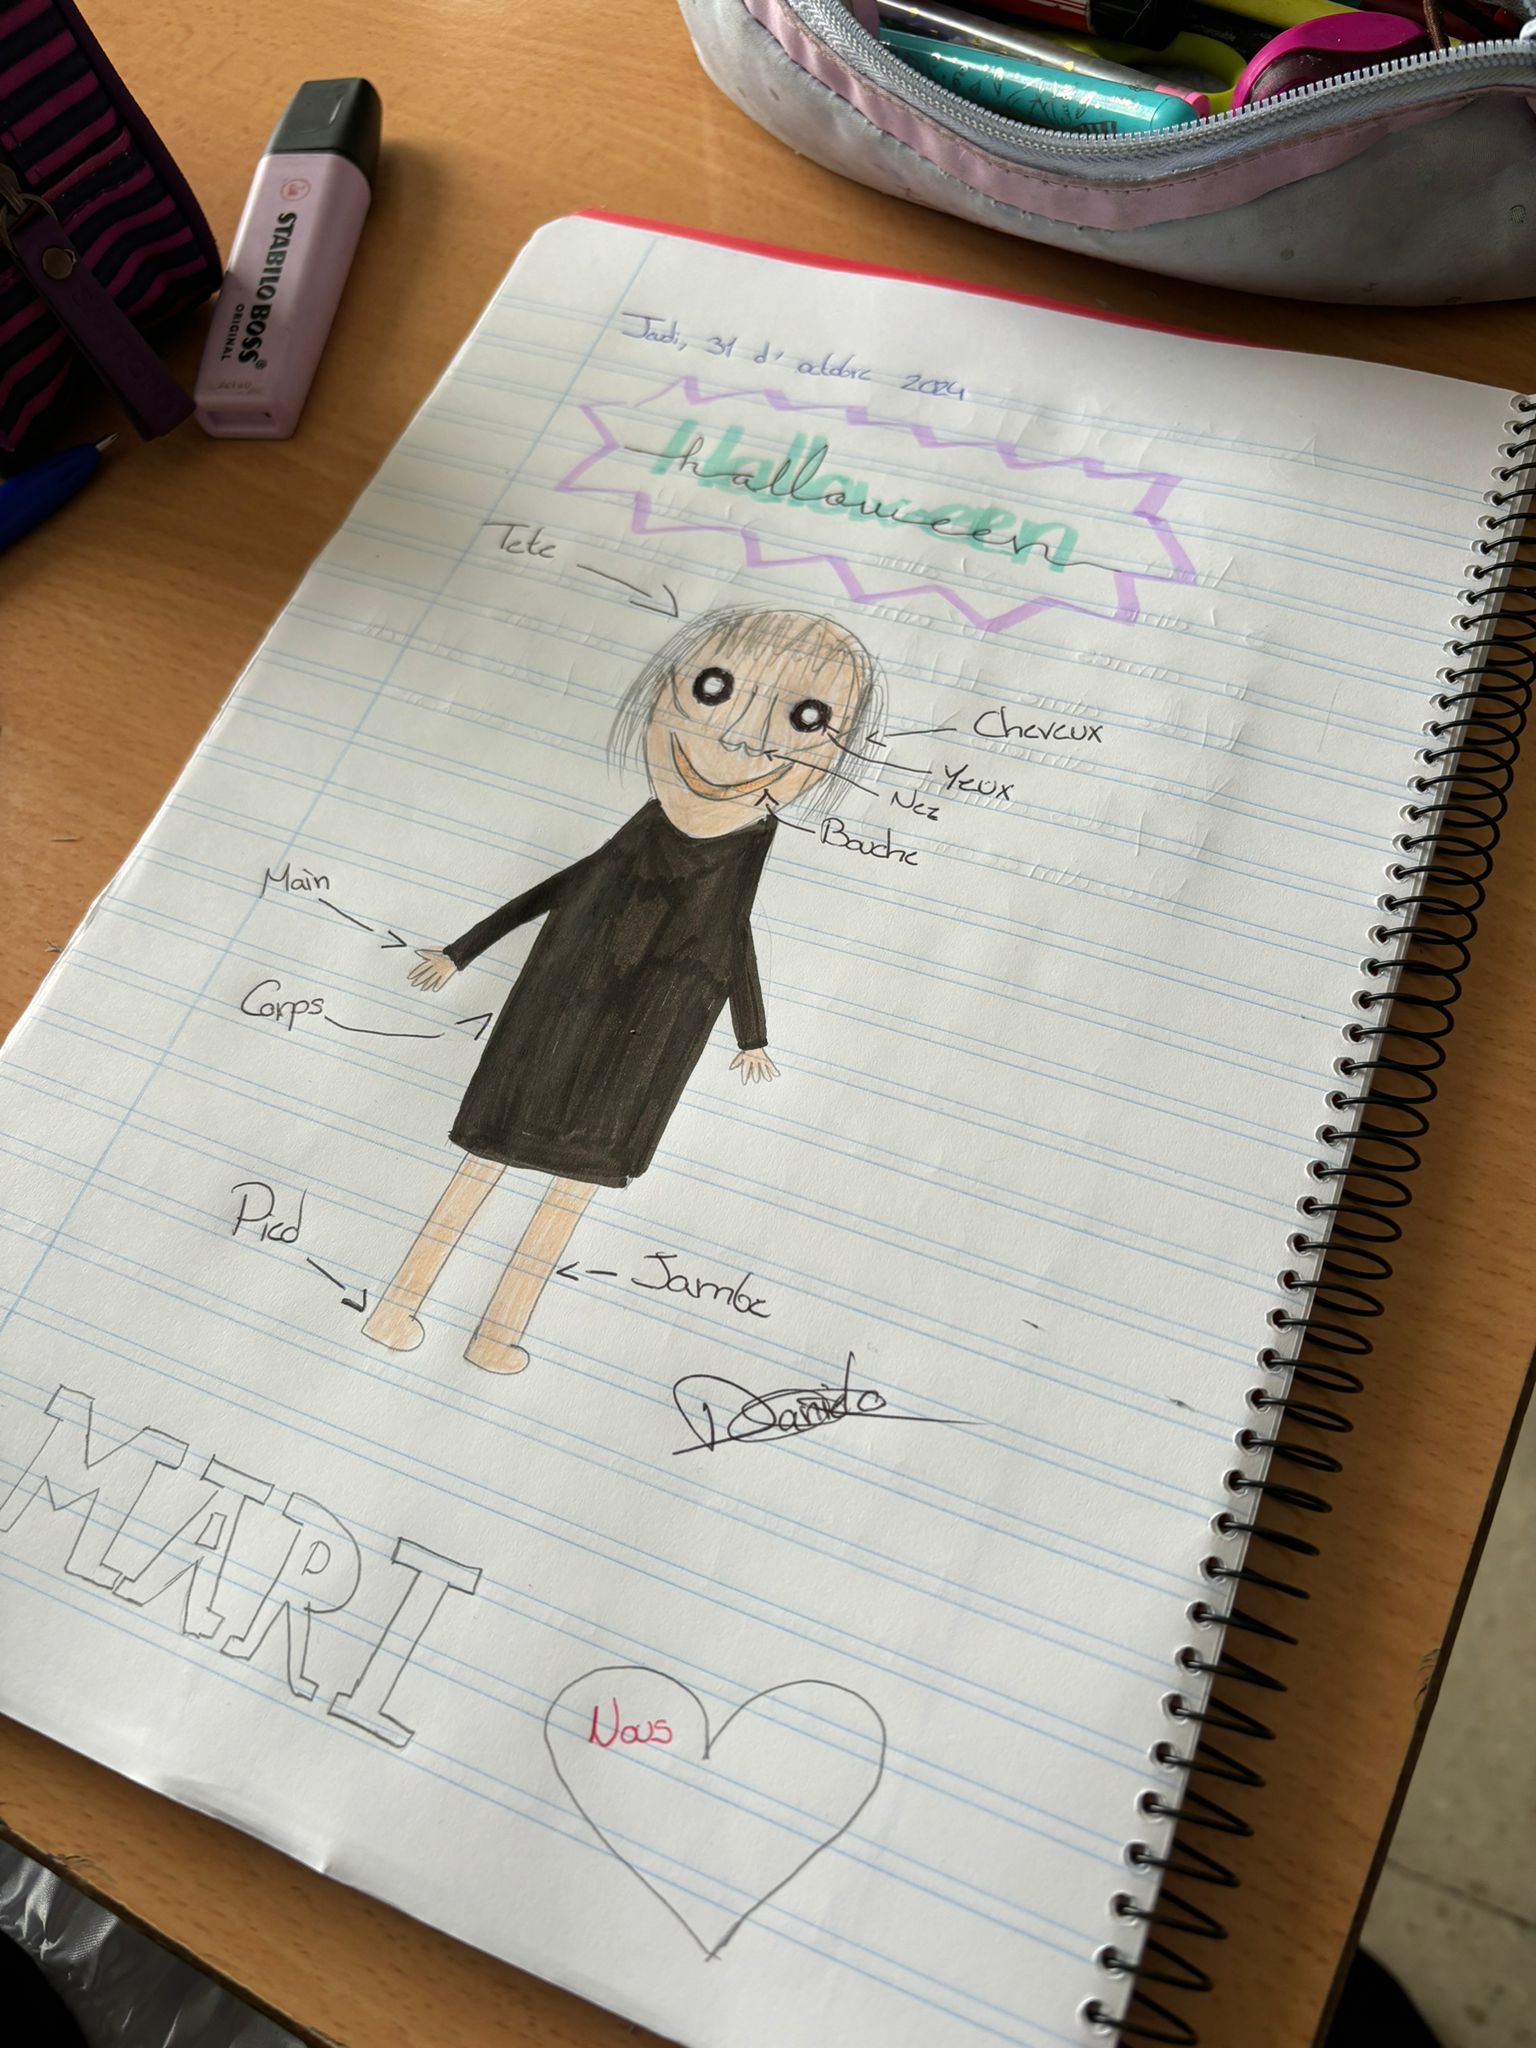 STABILO BOSS®
ORIGINAL
Jadi, 31 d' octobre 2024
Halloween
halloween
Tete
Cheveux
Yeux
Nez
Bouche
Main
Corps
Pied
Jambe
MARI
Nous